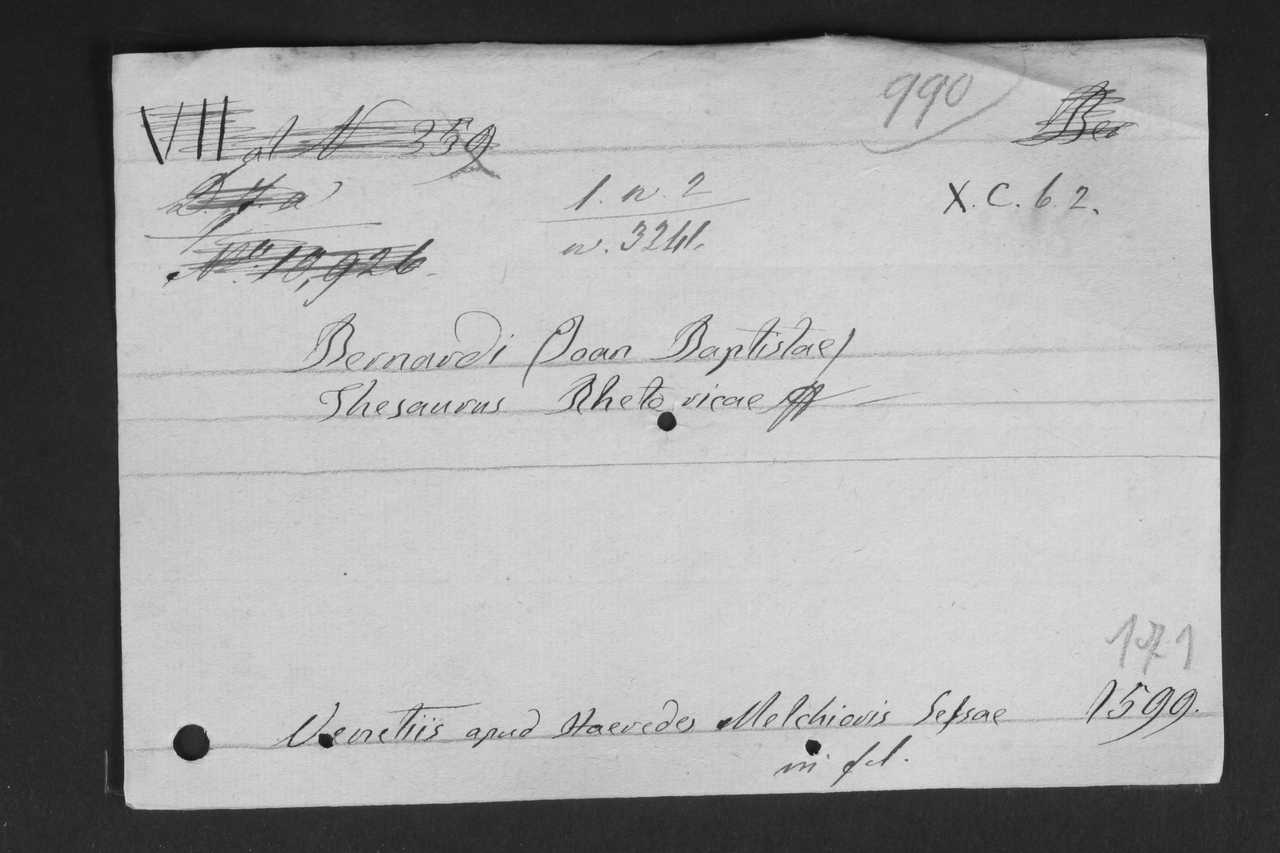 990
VII al N 359
Ber
1. n. 2
X. C. b. 2.
n. 3241.
No. 10,926.
Bernardi (Joan Baptistae)
Thesaurus Rhetoricae
171
Venetiis apud Haeredes Melchioris Sessae 1599.
in fol.